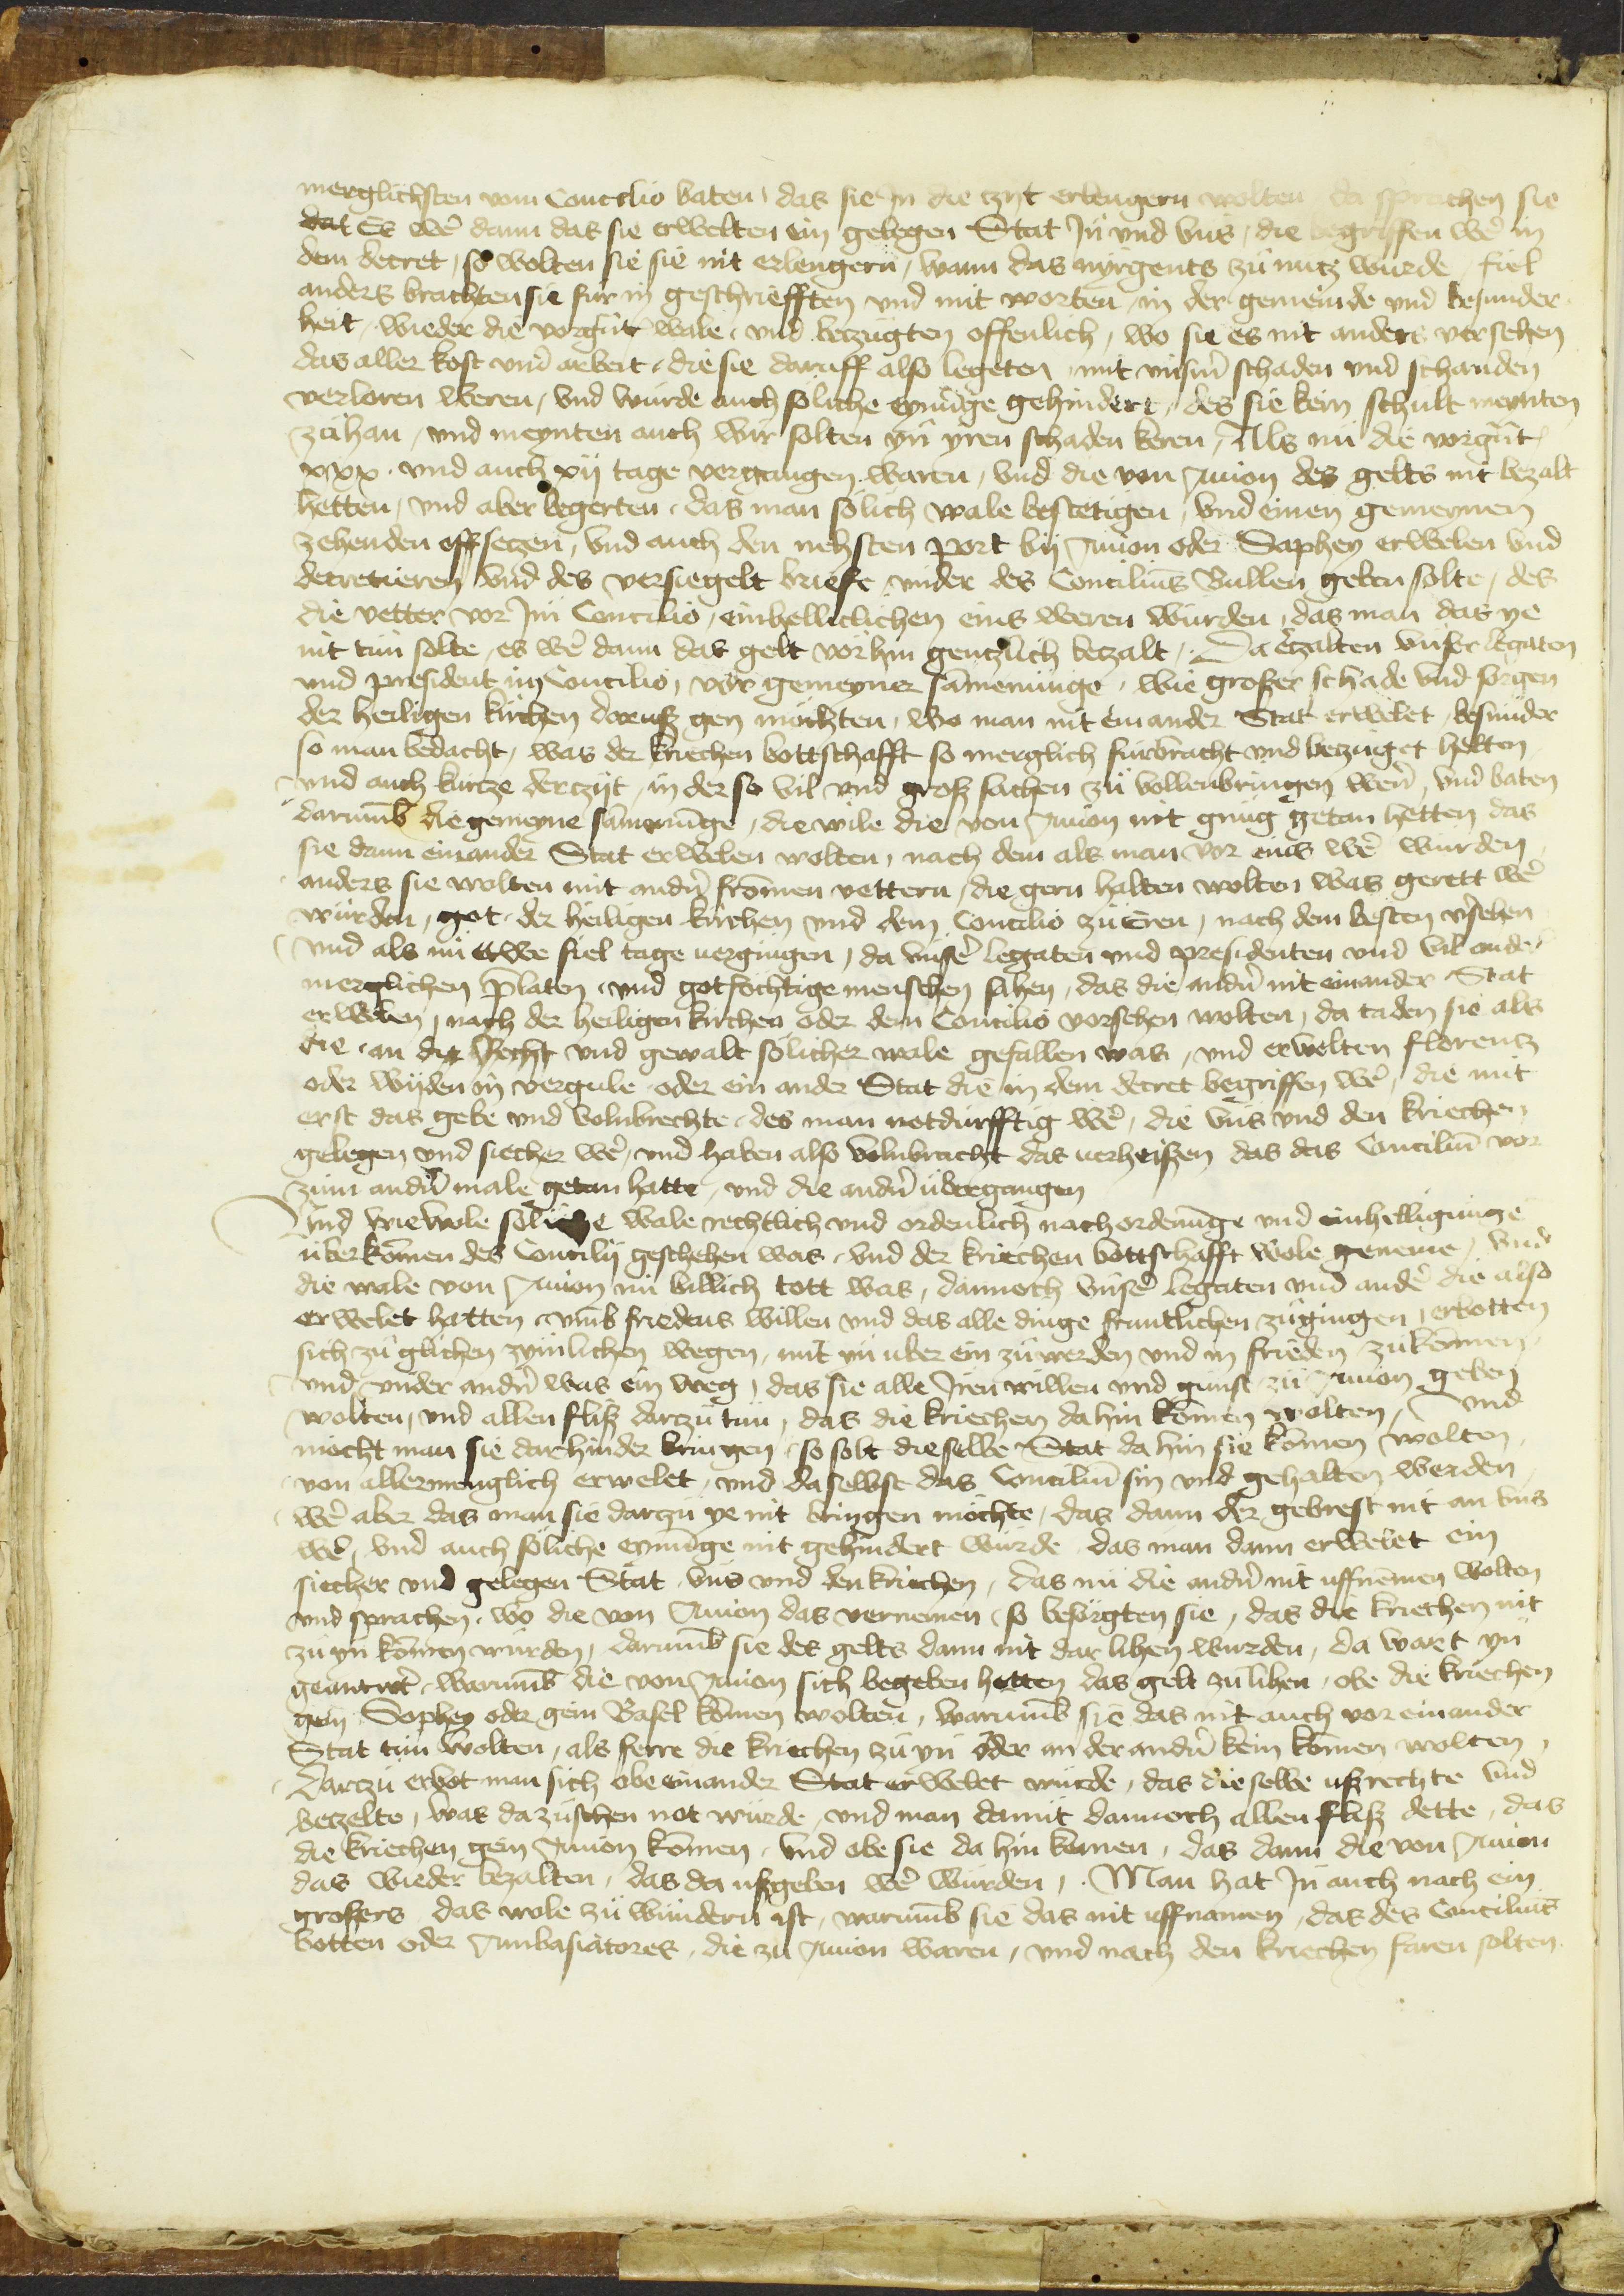 merglichsten vom Concilio baten, das sie In die tzyt erlengern wolten da sprachen sie
dat Es we͂ dann das sie erwelten ein gelegen Stat Jn̄ vnd vns, die begriffen we͂ in
dem decret, so wolten sie sie nit erlengern, wann das nyrgents zu nutz wurde, fiel
anders brachten sie fur in geschriefften vnd mit worten, in der gemeinde vnd besunder
heit, wieder die vorgn̄t wale, vnd betzugten offenlich, wo sie es nit anders versehen
das aller kost vnd arbeit, die sie daruff also legeten, mit vnsern̄ schaden vnd schanden
verloren weren, vnd wurde auch soliche eynu͂ge gehindert, des sie kein schult meynten
zuhan, vnd meynten auch wir solten yn̄ yren schaden keren, Als nu die vorgn̄t
xxx. vnd auch xij tage vergangen waren, vnd die von Auion des gelts nit bezalt
hetten, vnd aber begerten, das man solich wale bestetigen, vnd einen gemeynen
zehenden offsetzen, vnd auch den nehsten port bij Auion oder Saphey erwelen vnd
decretieren vnd des versiegelt briefe vnder des Concilius Bullen geben solte, des
die vetter vor Im Concilio, einhelliclichen eins weren wurden, das man das ye
nit tun solte, es we͂ dann das gelt vorhin gentzlich betzalt, Da ertzalten vnser legaten
vnd president im Concilio, vor gemeyner sa͂menunge, wie großer schade vnd sorgen
der heiligen kirchen doruß gen mochten, wo man nit ein ander Stat erwelet, besunder
so man bedacht, was der kriechen bottschafft so merglich furbracht vnd betzuget hetten
vnd auch kurtze der tzyt, in der so vil vnd groß sachen zu vollenbringen wern̄, vnd baten
daru͂b die gemeyne sa͂menu͂ge, die wile die von Auion nit gnug getan hetten das
sie dann ein ander Stat erwelen wolten, nach dem als man vor eins we͂ wurden
anders sie wolten mit andn̄ fro͂men vettern, die gern halten wolten was gerett we͂
wurden, got, der heiligen kirchen vnd dem Concilio zu Eren, nach dem besten v͂sehen
vnd als nu ettwe fiel tage uergingen, da vnse͂ legaten vnd presidenten vnd vil ander
merglichen p͂laten, vnd gotfochtige menschen sahen, das die andn̄ nit ein ander Stat
erwelen, nach der heiligen kirchen oder dem Concilio vorsehen wolten, da taden sie als
die an die Recht vnd gewalt solicher wale gefallen was, vnd erwelten florentz
oder wyden in vergule oder ein ander Stat die in dem decret begriffen we͂, die mit
erst das gebe vnd volnbrechte, des man notdurfftig we͂, die vns vnd den kriechen
gelegen vnd siecher we͂, vnd haben also volnbracht das uerheißen das das Conciliu͂ vor
zum andn̄ male getan hatte, vnd die andn̄ ubergangen
Und wiewole soliche wale rechtlich vnd ordenlich nach ordenu͂ge vnd einhelligunge
uberko͂men des Concilij geschehen was, vnd der kriechen bottschafft wole geneme, vnd
die wale von Auion nu billich tott was, dannoch vnse͂ legaten vnd ande͂ die also
erwelet hatten, vmb friedens willen vnd das alle dinge fruntlichen zugingen, erbotten
sich zu glichen zymlichen wegen, mit yn̄ uber ein zu werden vnd in frieden zuko͂men
vnd vnder andn̄ was ein weg, das sie alle Iren willen vnd gunst zu Auion geben
wolten, vnd allen fliß dartzu tun, das die kriechen da hin ko͂men wolten, Vnd
mocht man sie darhinder bringen, so solt dieselbe Stat da hin sie ko͂men wolten
von allermenglich erwelet, vnd daselbst das Conciliu͂ sin vnd gehalten werden
we͂ aber das man sie dartzu ye nit bringen mochte, das dann der gebrest nit an vns
we͂, vnd auch soliche eynu͂ge nit gehindert wurde das man dann erwelet ein
siecher vnd gelegen Stat vns vnd den kriechen, das nu die andn̄ nit uffne͂men wolten
vnd sprachen, wo die von Auion das vernemen, so besorgten sie, das die kriechen nit
zu yn̄ ko͂men wurden, daru͂b sie des gelts dann nit dar lihen wurden, da wart yn̄
geantwt͂, waru͂b die von Auion sich begeben hetten das gelt zu lihen, obe die kriechen
gein Sophey oder gein Basel ko͂men wolten, waru͂b sie das nit auch vor ein ander
Stat tun wolten, als ferre die kriechen zu yn̄ oder an der andn̄ kein ko͂men wolten,
Dartzu erbot man sich obe ein ander Stat erwelet wurde, das dieselbe ußrechte vnd
betzelte, was dazuschen not wurde, vnd man damit dannoch allen fliß dette, das
die kriechen gein Auion ko͂men, vnd obe sie da hin kemen, das dann die von Auion
das wieder bezalten, das da ußgeben we͂ wurden, Man hat In̄ auch nach ein
großers das wole zu wundern ist, waru͂b sie das nit uffnamen, das des Concilius
botten oder Ambasiatores, die zu Auion waren, vnd nach den kriechen faren solten